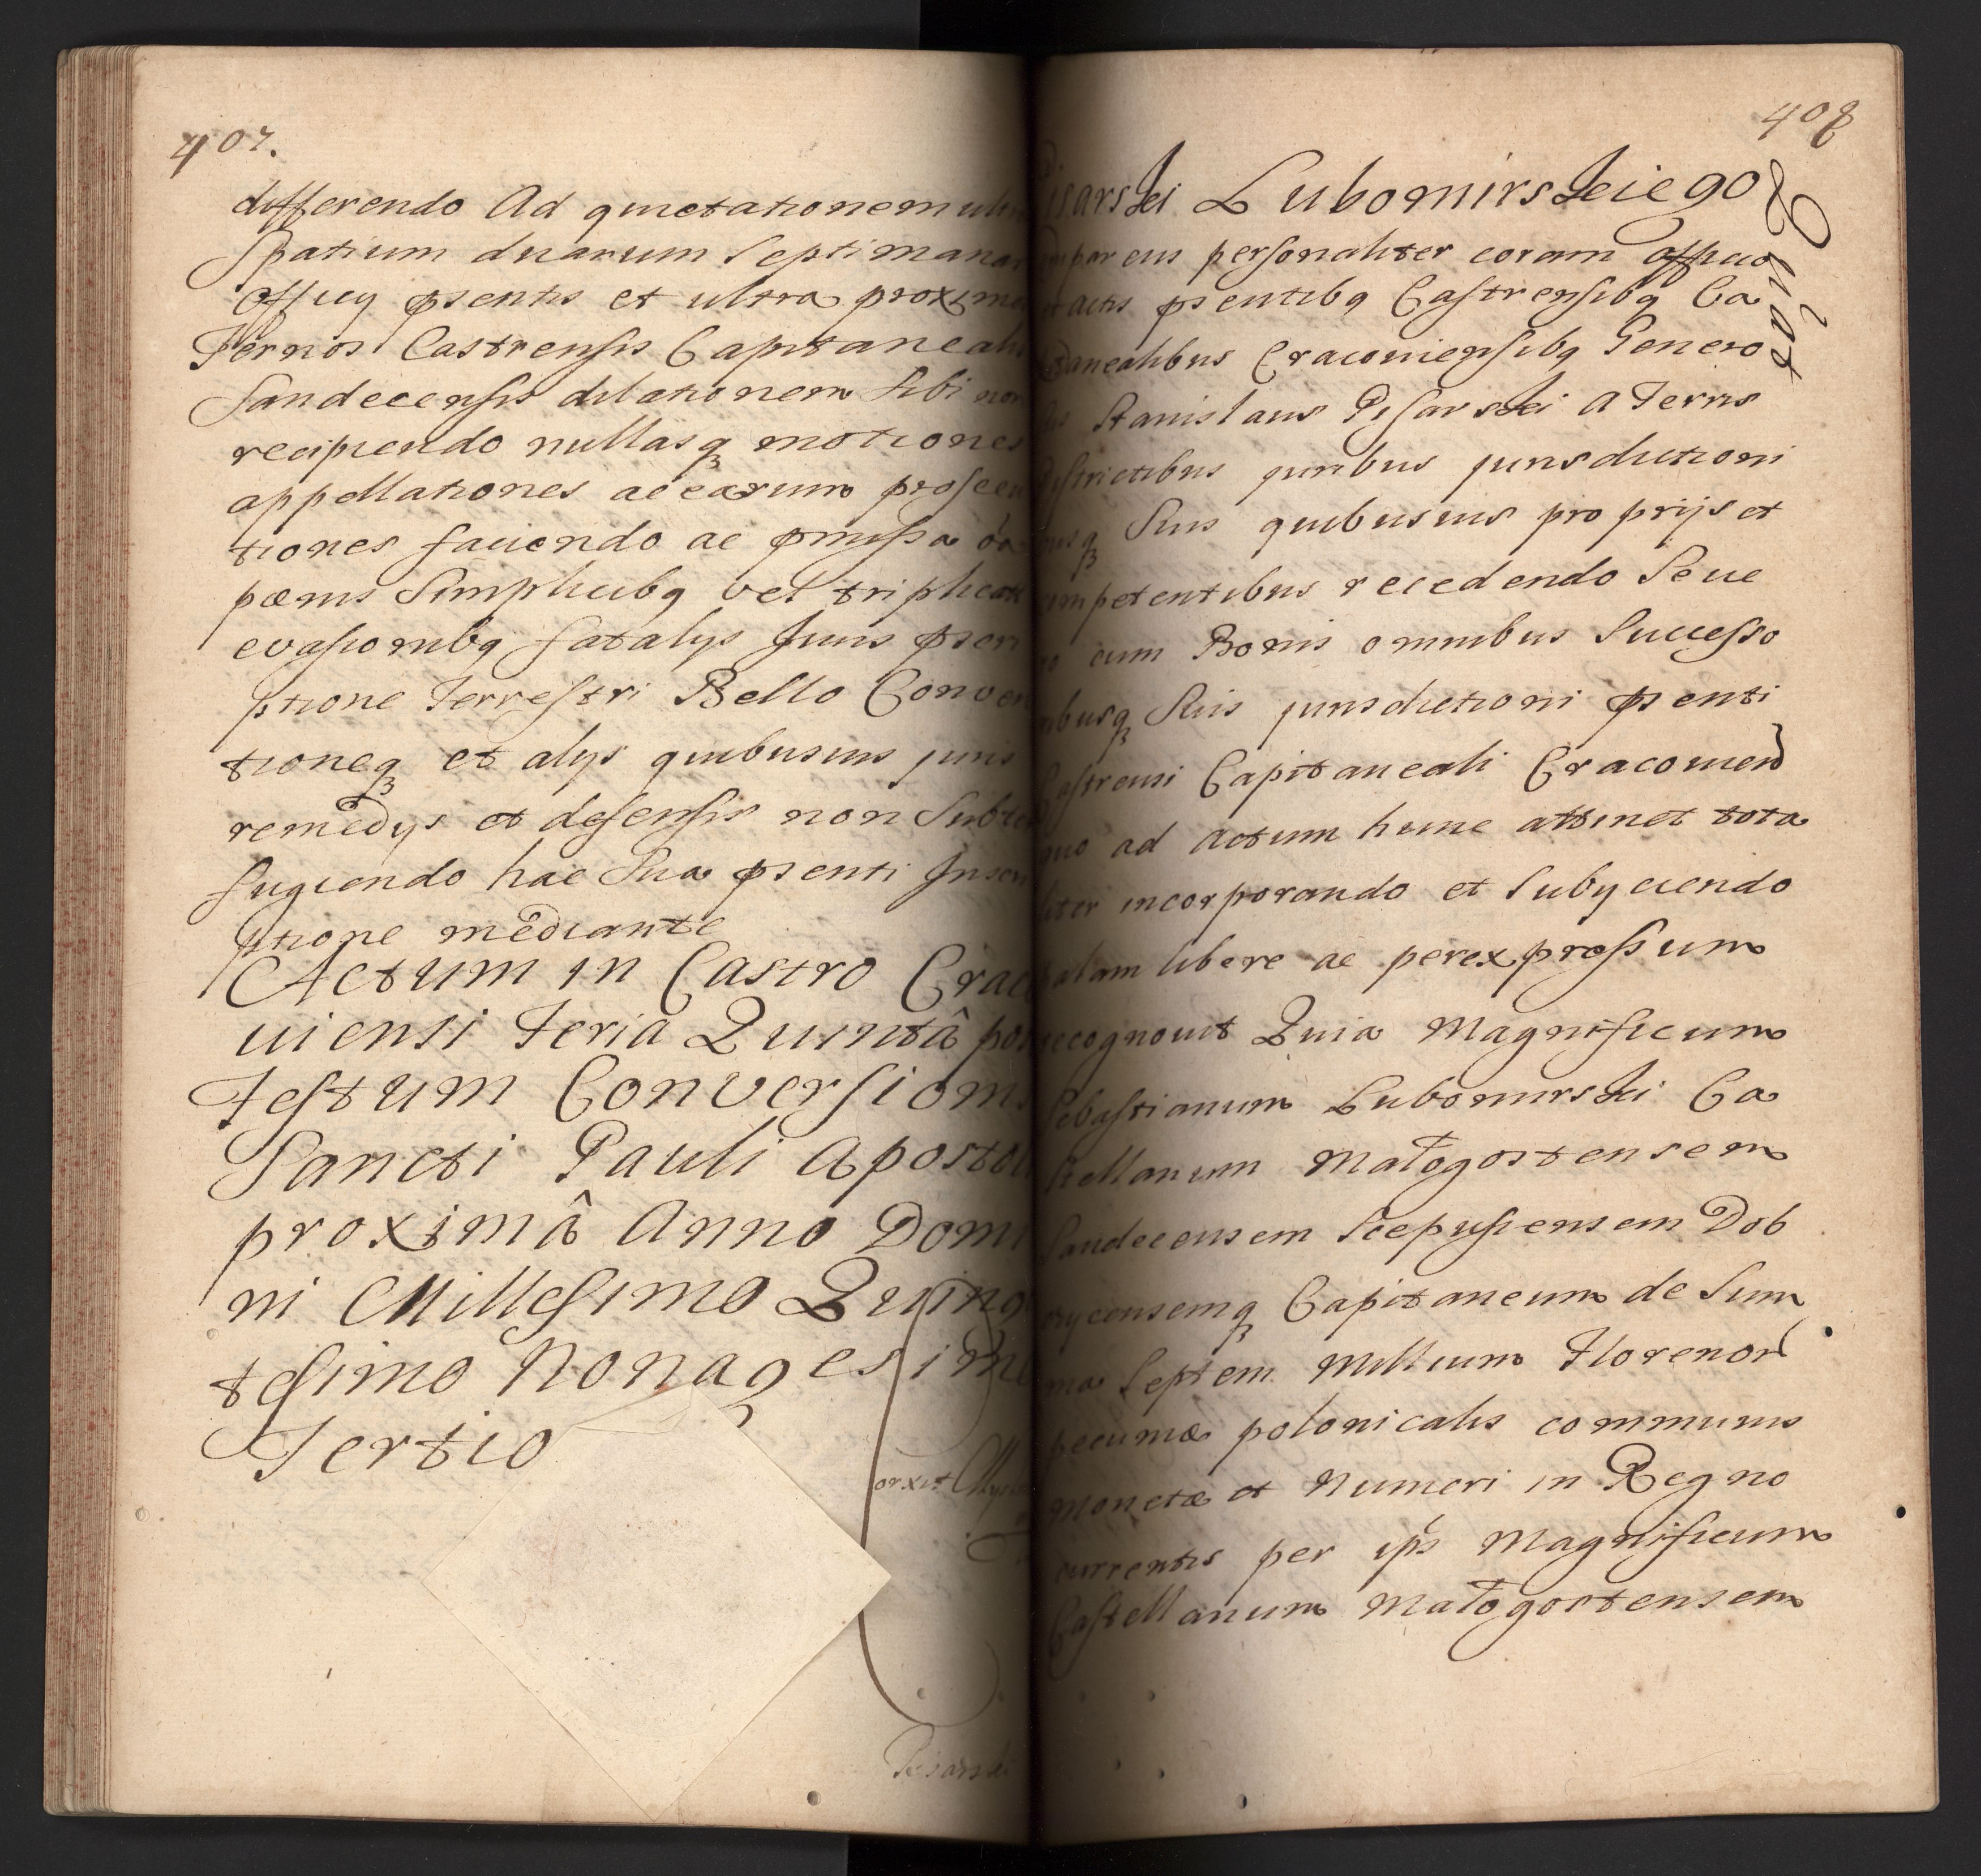 407.
differendo Ad quietationem ult
Spatium duarum Septimanar
Officy psentis et ultra proximo
Terños Castrensis Capitaneali
Sandecensis dilationem Sibi non
recipiendo nullasq motiones
appellationes acearum prosecu
tiones faciendo ac pmissa
pœnis Simplicibq vel triplicat
evasionibq fatalys Juris pscri
ptione Terrestri Bello Conven
tioneq et alys quibusuis juris
remedys et defensis non Subter
fugiendo hac Sua psenti Inscri
ptione mediante
Actum in Castro Craco
uiensi Feria Quintâ post
Festum Conversionis
Sancti Pauli Aposto
proximâ Anno Domi
ni Millesimo Quinge
tesimo Nonagesimo
Tertio
orxit
Pisarski
408
Pisarski Lubomirskiego
Quiat
mparens personaliter coram officio
et actis psentibq Castrensibq Ca
pitanealibus Cracouiensibq Genero
sus Stanislaus Pisarski A Terris
Districtibus juribus jurisdictioni
busq Suis quibusuis proprijs et
competentibus recedendo Seue
ro cum Bonis omnibus Successo
ribusq Suis jurisdictioni psenti
Castrensi Capitaneali Cracouien
quo ad Actum hunc attinet tota
liter incorporando et Subyciendo
palam libere ac perexpressum
recognouit Quia Magnificum
Sebastianum Lubomirski Ca
stellanum Małogostensem
Sandecensem Scepusiensem Dob
czycensemq Capitaneum de Sum
ma Septem Millium Florenor
pecuniæ polonicalis communis
Monetæ et Numeri in Regno
currentis per ips Magnificum
Castellanum Małogostensem